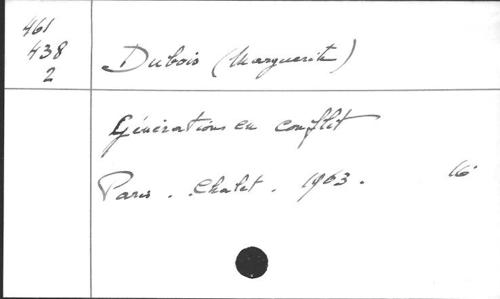 461
438
2
Dubois (Marguerite)
Générations en conflit
Paris. Chalet. 1963. 16°